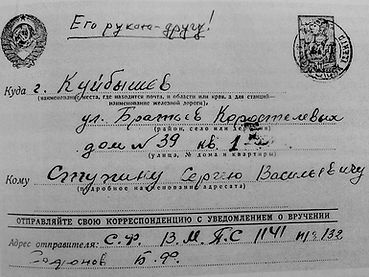 Его рукою - другу!
Куда г. Куйбышев
(наименование места, где находится почта, и области или края, а для станций—
наименование железной дороги).
ул. Братьев Коростелевых
(район, село или деревня)
дом № 39 кв.
(улица, № дома и квартиры)
Кому Ступину Сергею Васильевичу
(подробное наименование адресата)
ОТПРАВЛЯЙТЕ СВОЮ КОРРЕСПОНДЕНЦИЮ С УВЕДОМЛЕНИЕМ О ВРУЧЕНИИ
Адрес отправителя: С. Ф. В. М. П. С 1141 п/я 132
Сафонов Б. Ф.